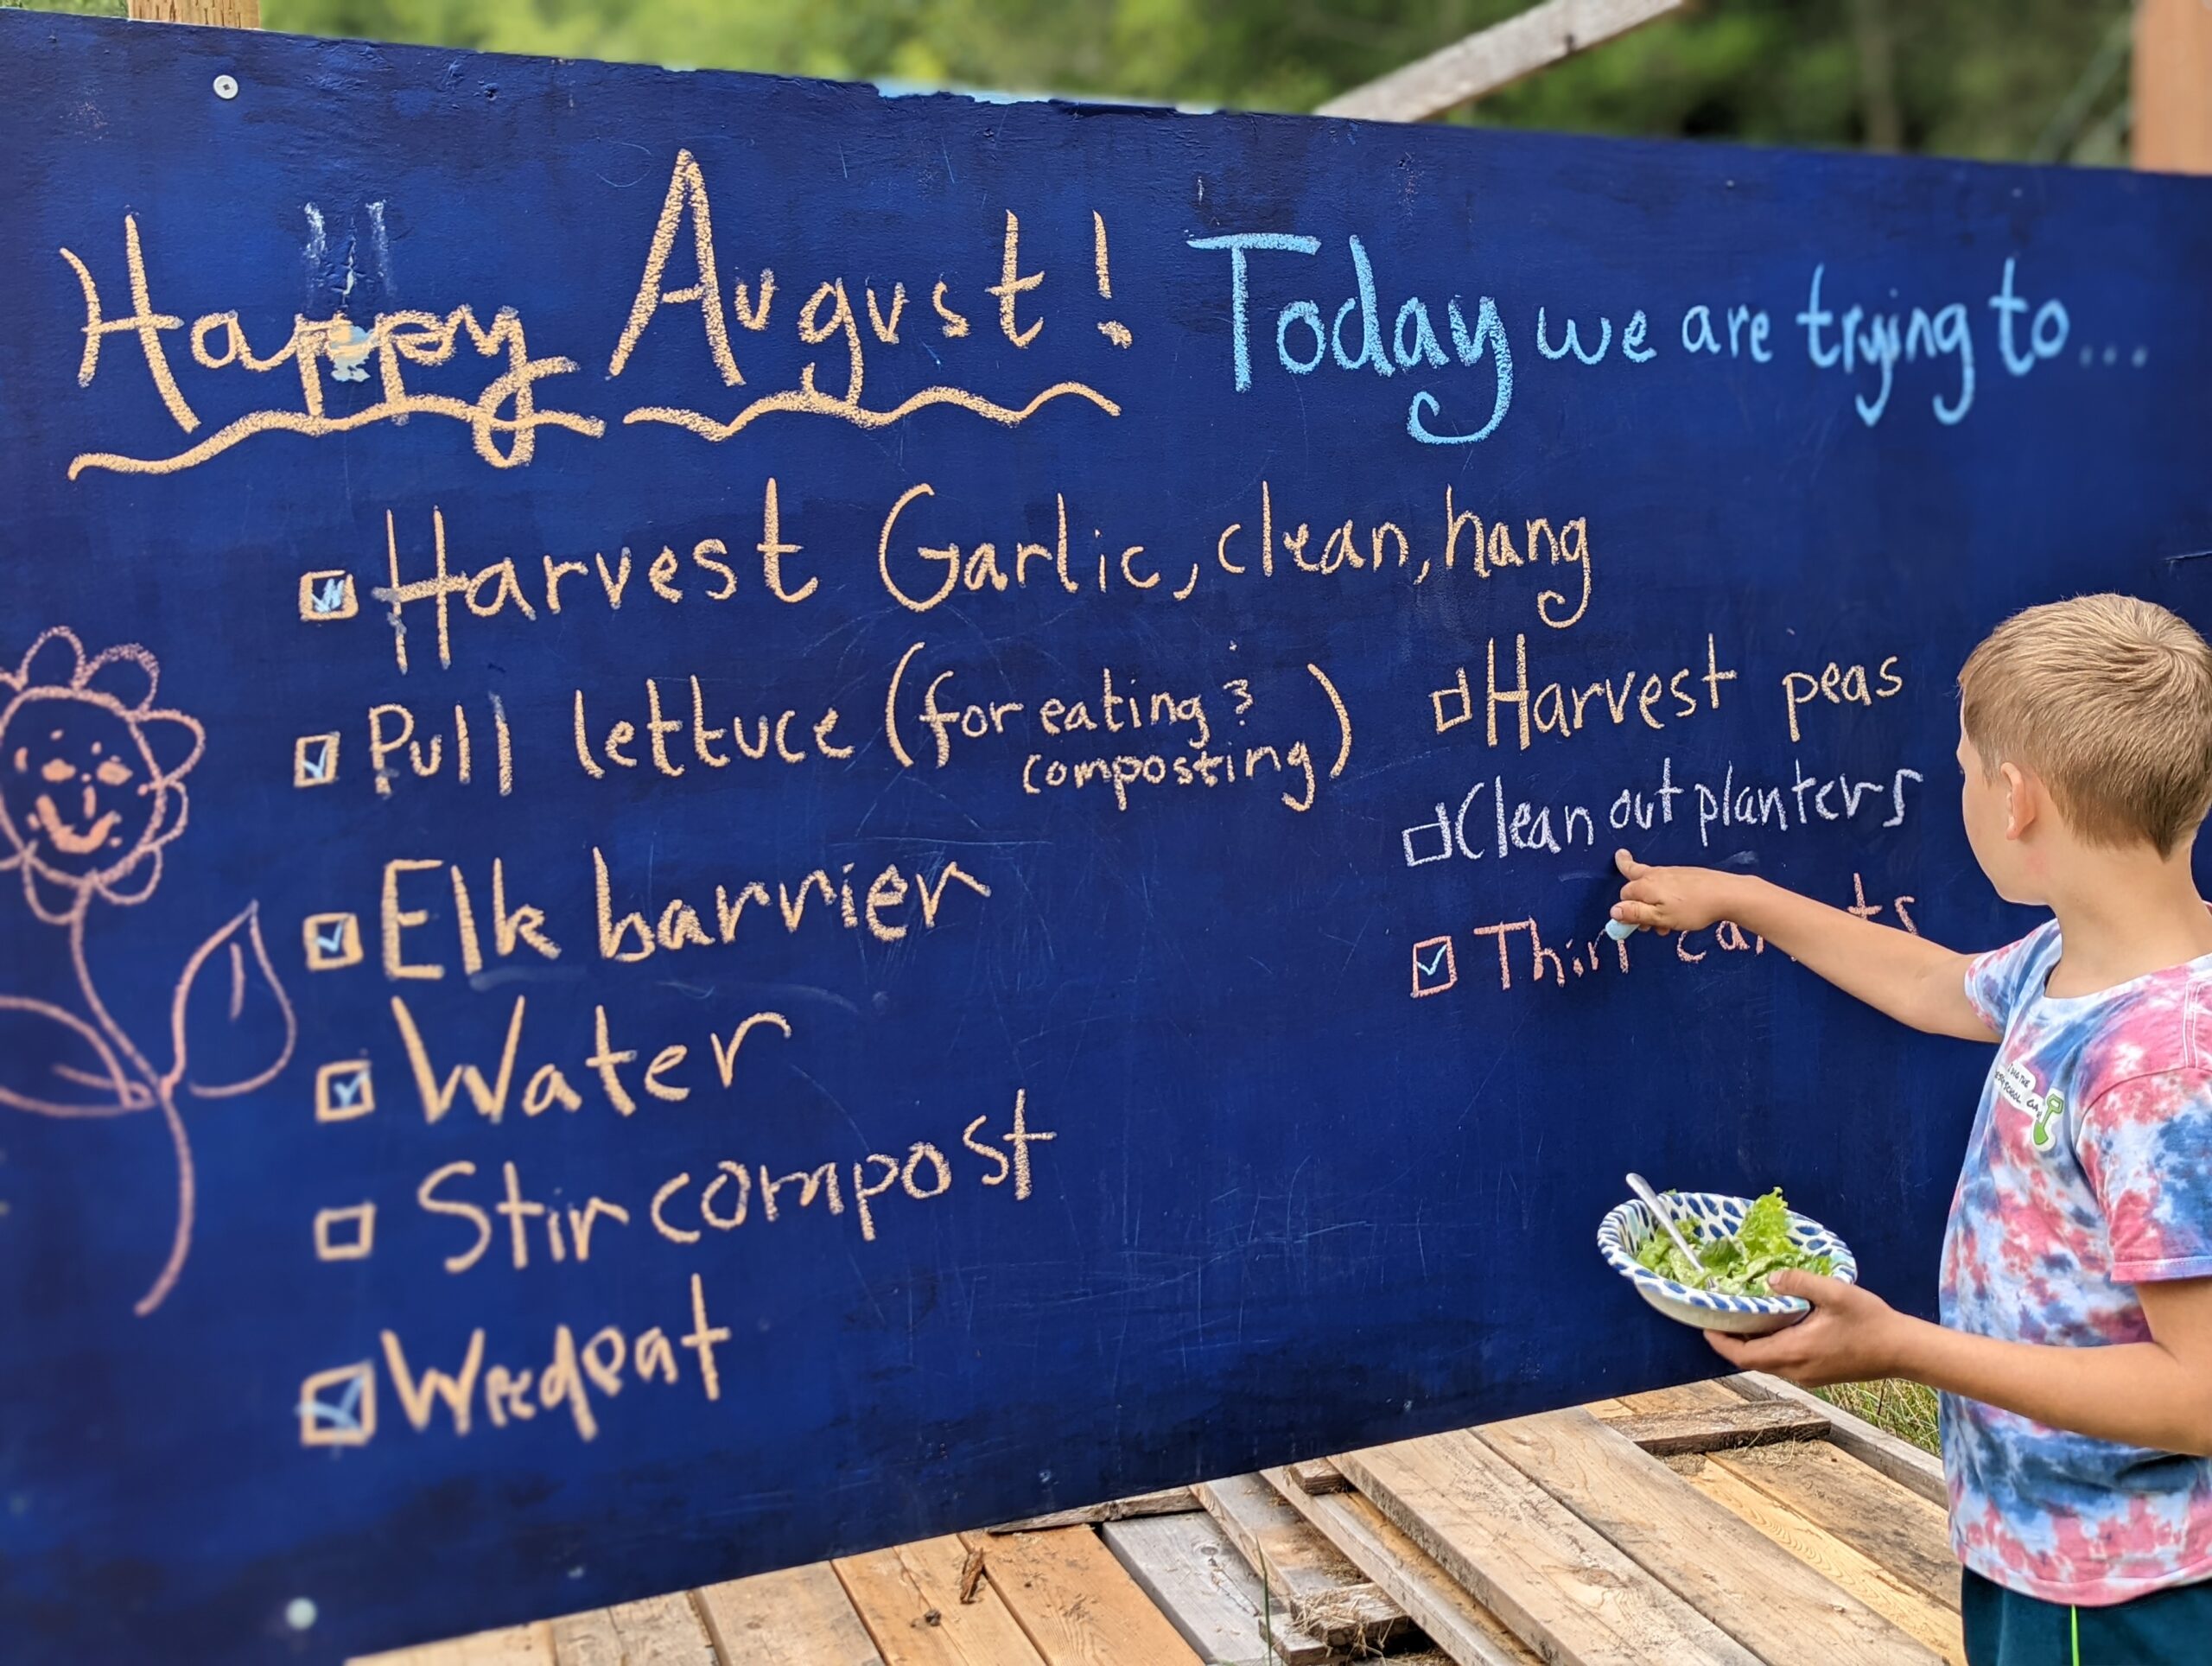 Happy August! Today we are trying to...
Harvest Garlic, clean, hang
Pull lettuce (for eating &
composting)
Elk barrier
Water
Stir compost
Weedeat
Harvest peas
Clean out planters
Thin